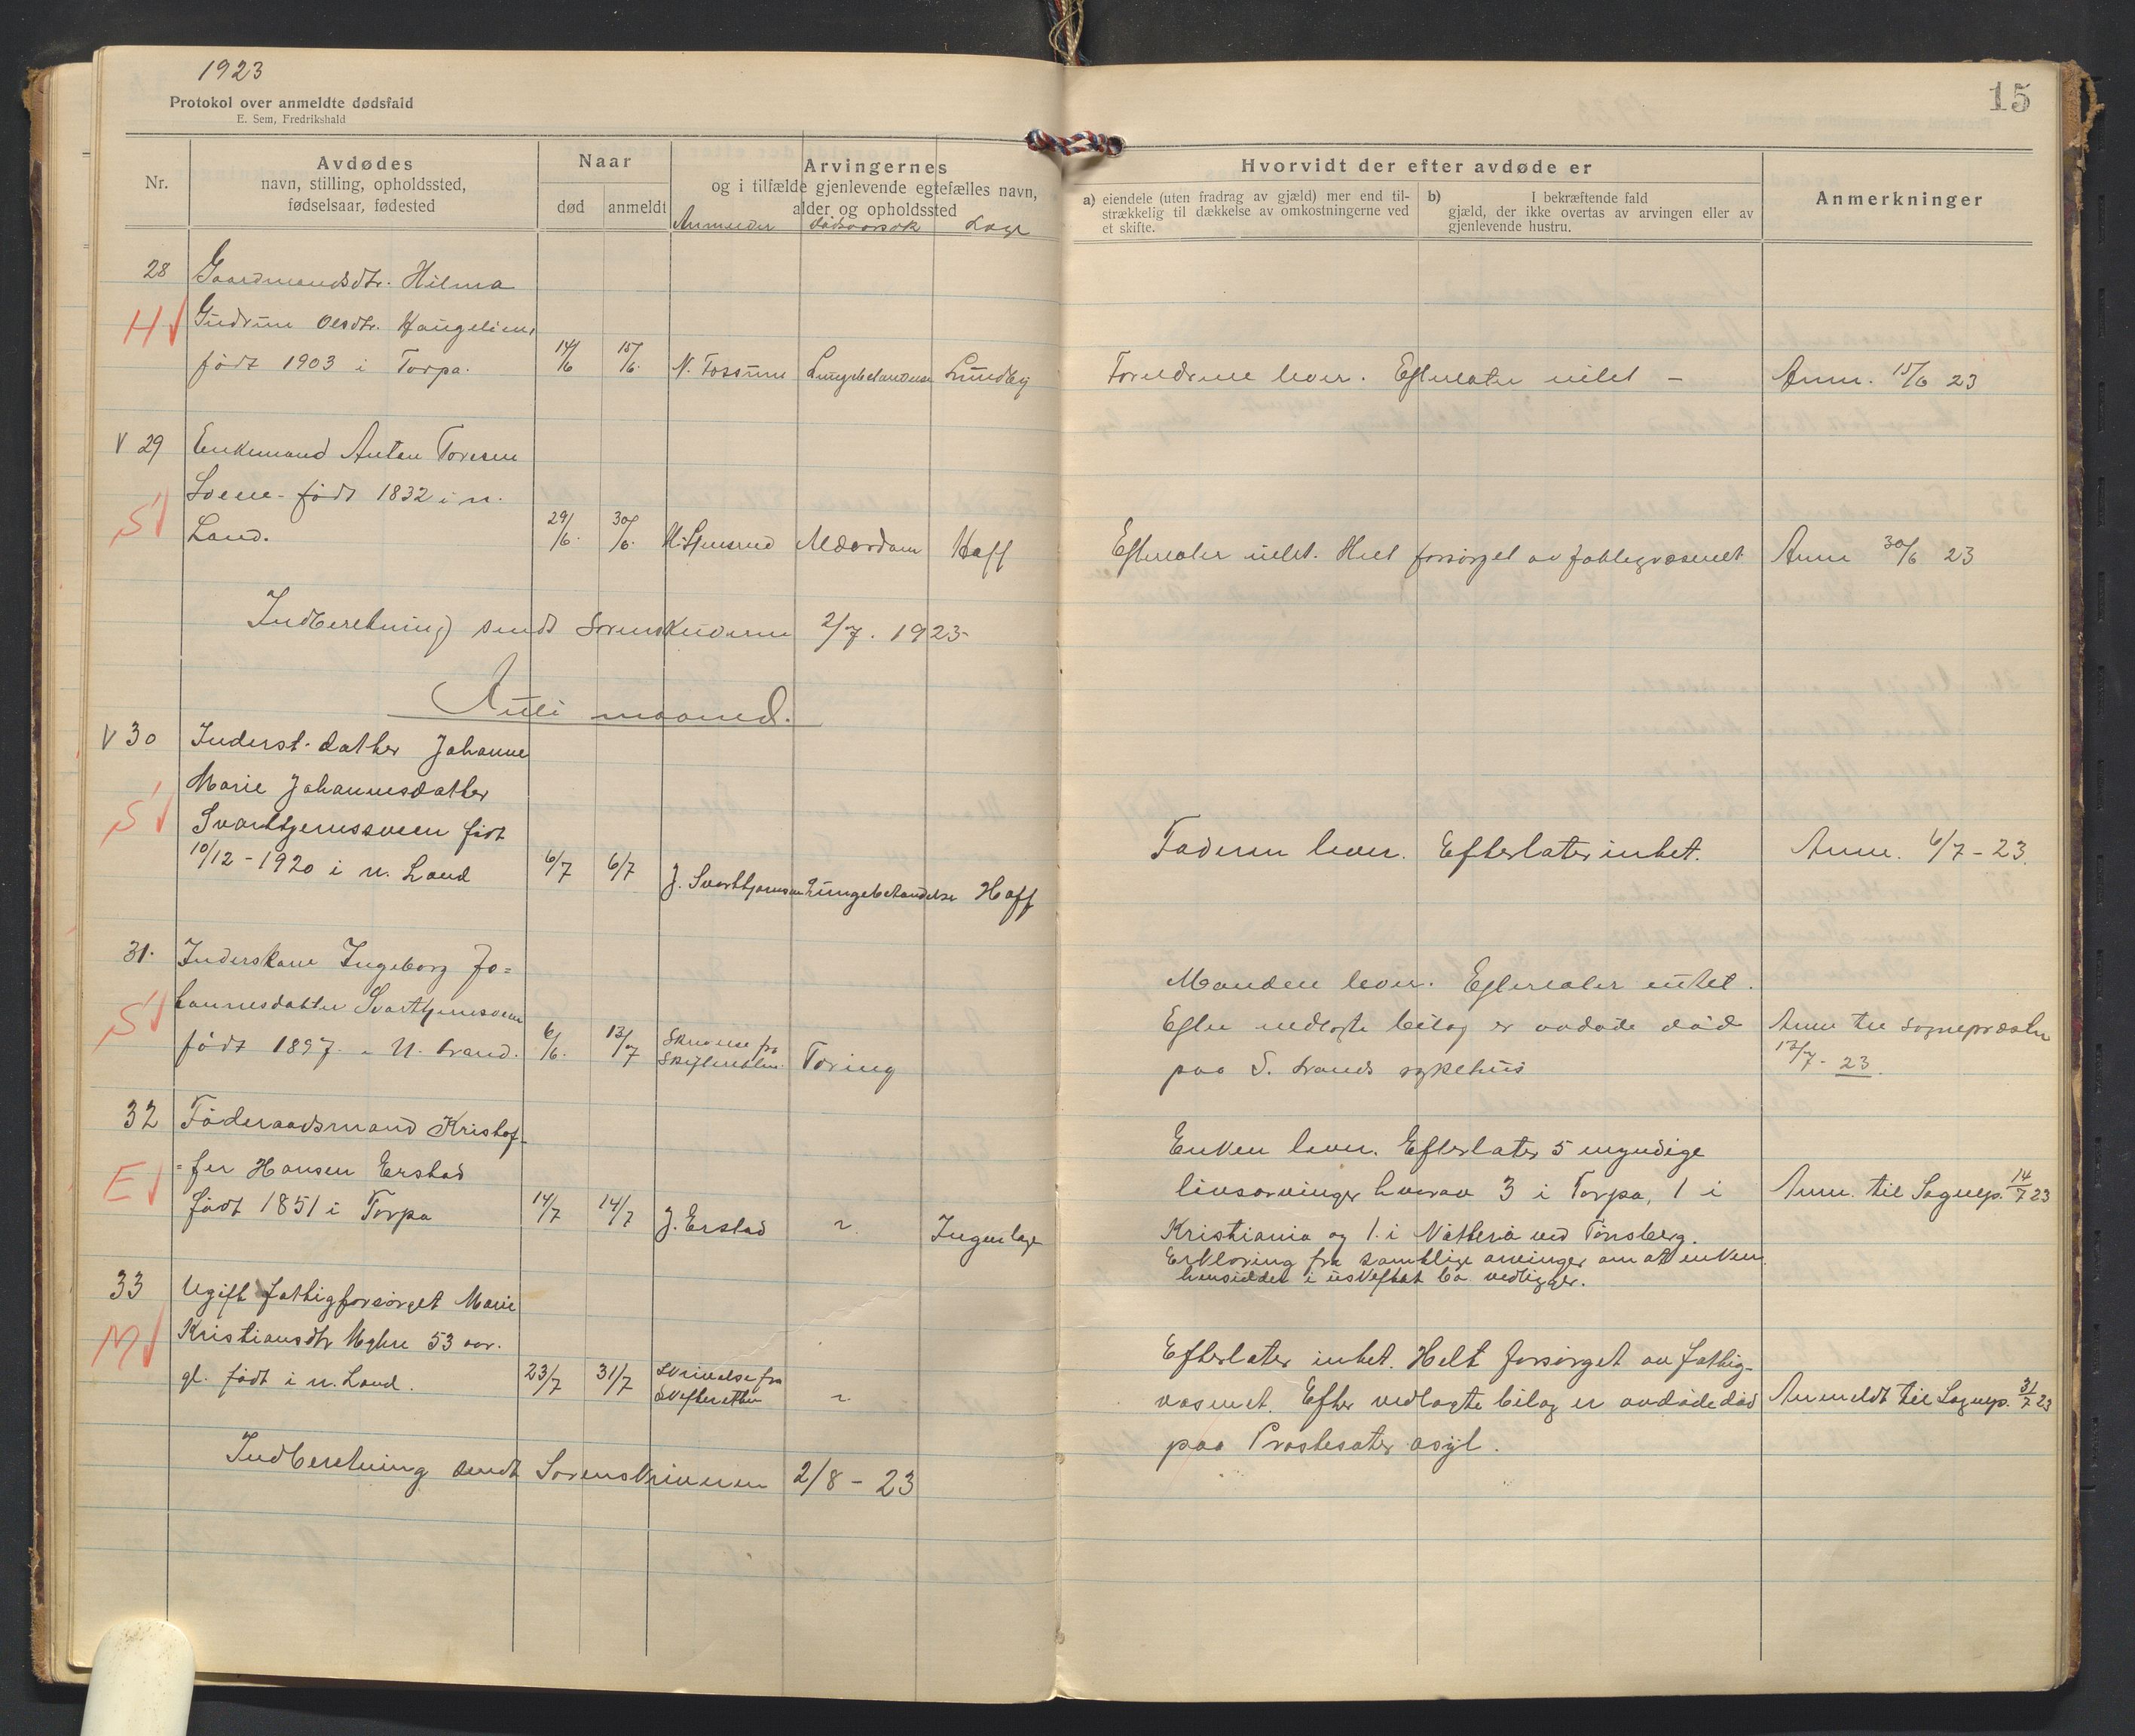 1923
Protokol over anmeldte dødsfald
E. Sem, Fredrikshald
15
Nr.
Avdødes
navn, stilling, opholdssted,
fødselsaar, fødested
Naar
død
anmeldt
Arvingernes
og i tilfælde gjenlevende egtefælles navn,
alder og opholdssted
Anmelder Dødsaarsak Læge
Hvorvidt der efter avdøde er
a) eiendele (uten fradrag av gjæld) mer end til-
strækkelig til dækkelse av omkostningerne ved
et skifte.
b) I bekræftende fald
gjæld, der ikke overtas av arvingen eller av
gjenlevende hustru.
Anmerkninger
28 Gaardmandsdtr. Hilma
H Gudrun Olsdtr. Haugelien,
født 1903 i Torpa. 14/6 15/6. N. Fossum Lungebetændelse Lundby Forældrene lever. Efterlater intet - Anm. 15/6 23
V 29 Enkemand Anton Toresen
S født 1832 i n.
Land. 29/6. 30/6. Alderdom Hoff Efterlater intet. Helt forsørget av fattigvæsenet Anm 30/6 23
Indberetning sendt Sorenskriveren 2/7. 1923
Juli maaned.
V 30 Inderst. datter Johanne
Marie Johannesdatter
S Svarttjernssveen født
10/12 - 1920 i n. Land 6/7 6/7 J. Svarttjernsveen Lungebetændelse Hoff Faderen lever. Efterlater intet. Anm. 6/7 - 23.
31. Inderskone Ingeborg Jo=
S hannesdatter Svarttjernsveen
født 1897. N. Land. 6/6. 13/7 Skrivelse fra Skifteretten. Tæring
Manden lever. Efterlater intet.
Efter vedlagte bilag er avdøde død
paa S. Lands sykehus
Anm til sognepræsten
13/7 - 23.
32 Føderaadsmand Kristof-
E =fer Hansen Erstad
født 1851 i Torpa 14/7 14/7 J. Erstad ~. Ingen læge
Enken lever. Efterlater 5 myndige
livsarvinger hvorav 3 i Torpa, 1 i
Kristiania og 1 i Nøtterø ved Tønsberg.
Erklæring fra samtlige arvinger om at enken
hensidder i uskiftet bo vedligger.
Anm. til Sognep. 14/7 23
33 Ugift fattigforsørget Marie
M Kristiansdtr Myhre 53 aar.
gl. født i n. Land. 23/7 31/7 Skrivelse fra Skifteretten ~
Efterlater intet. Helt forsørget av fattig-
væsenet. Efter vedlagte bilag er avdøde død
paa Præstesæter asyl.
Anmeldt til Sognep. 31/7 23
Indberetning sendt Sorenskriveren 2/8 - 23